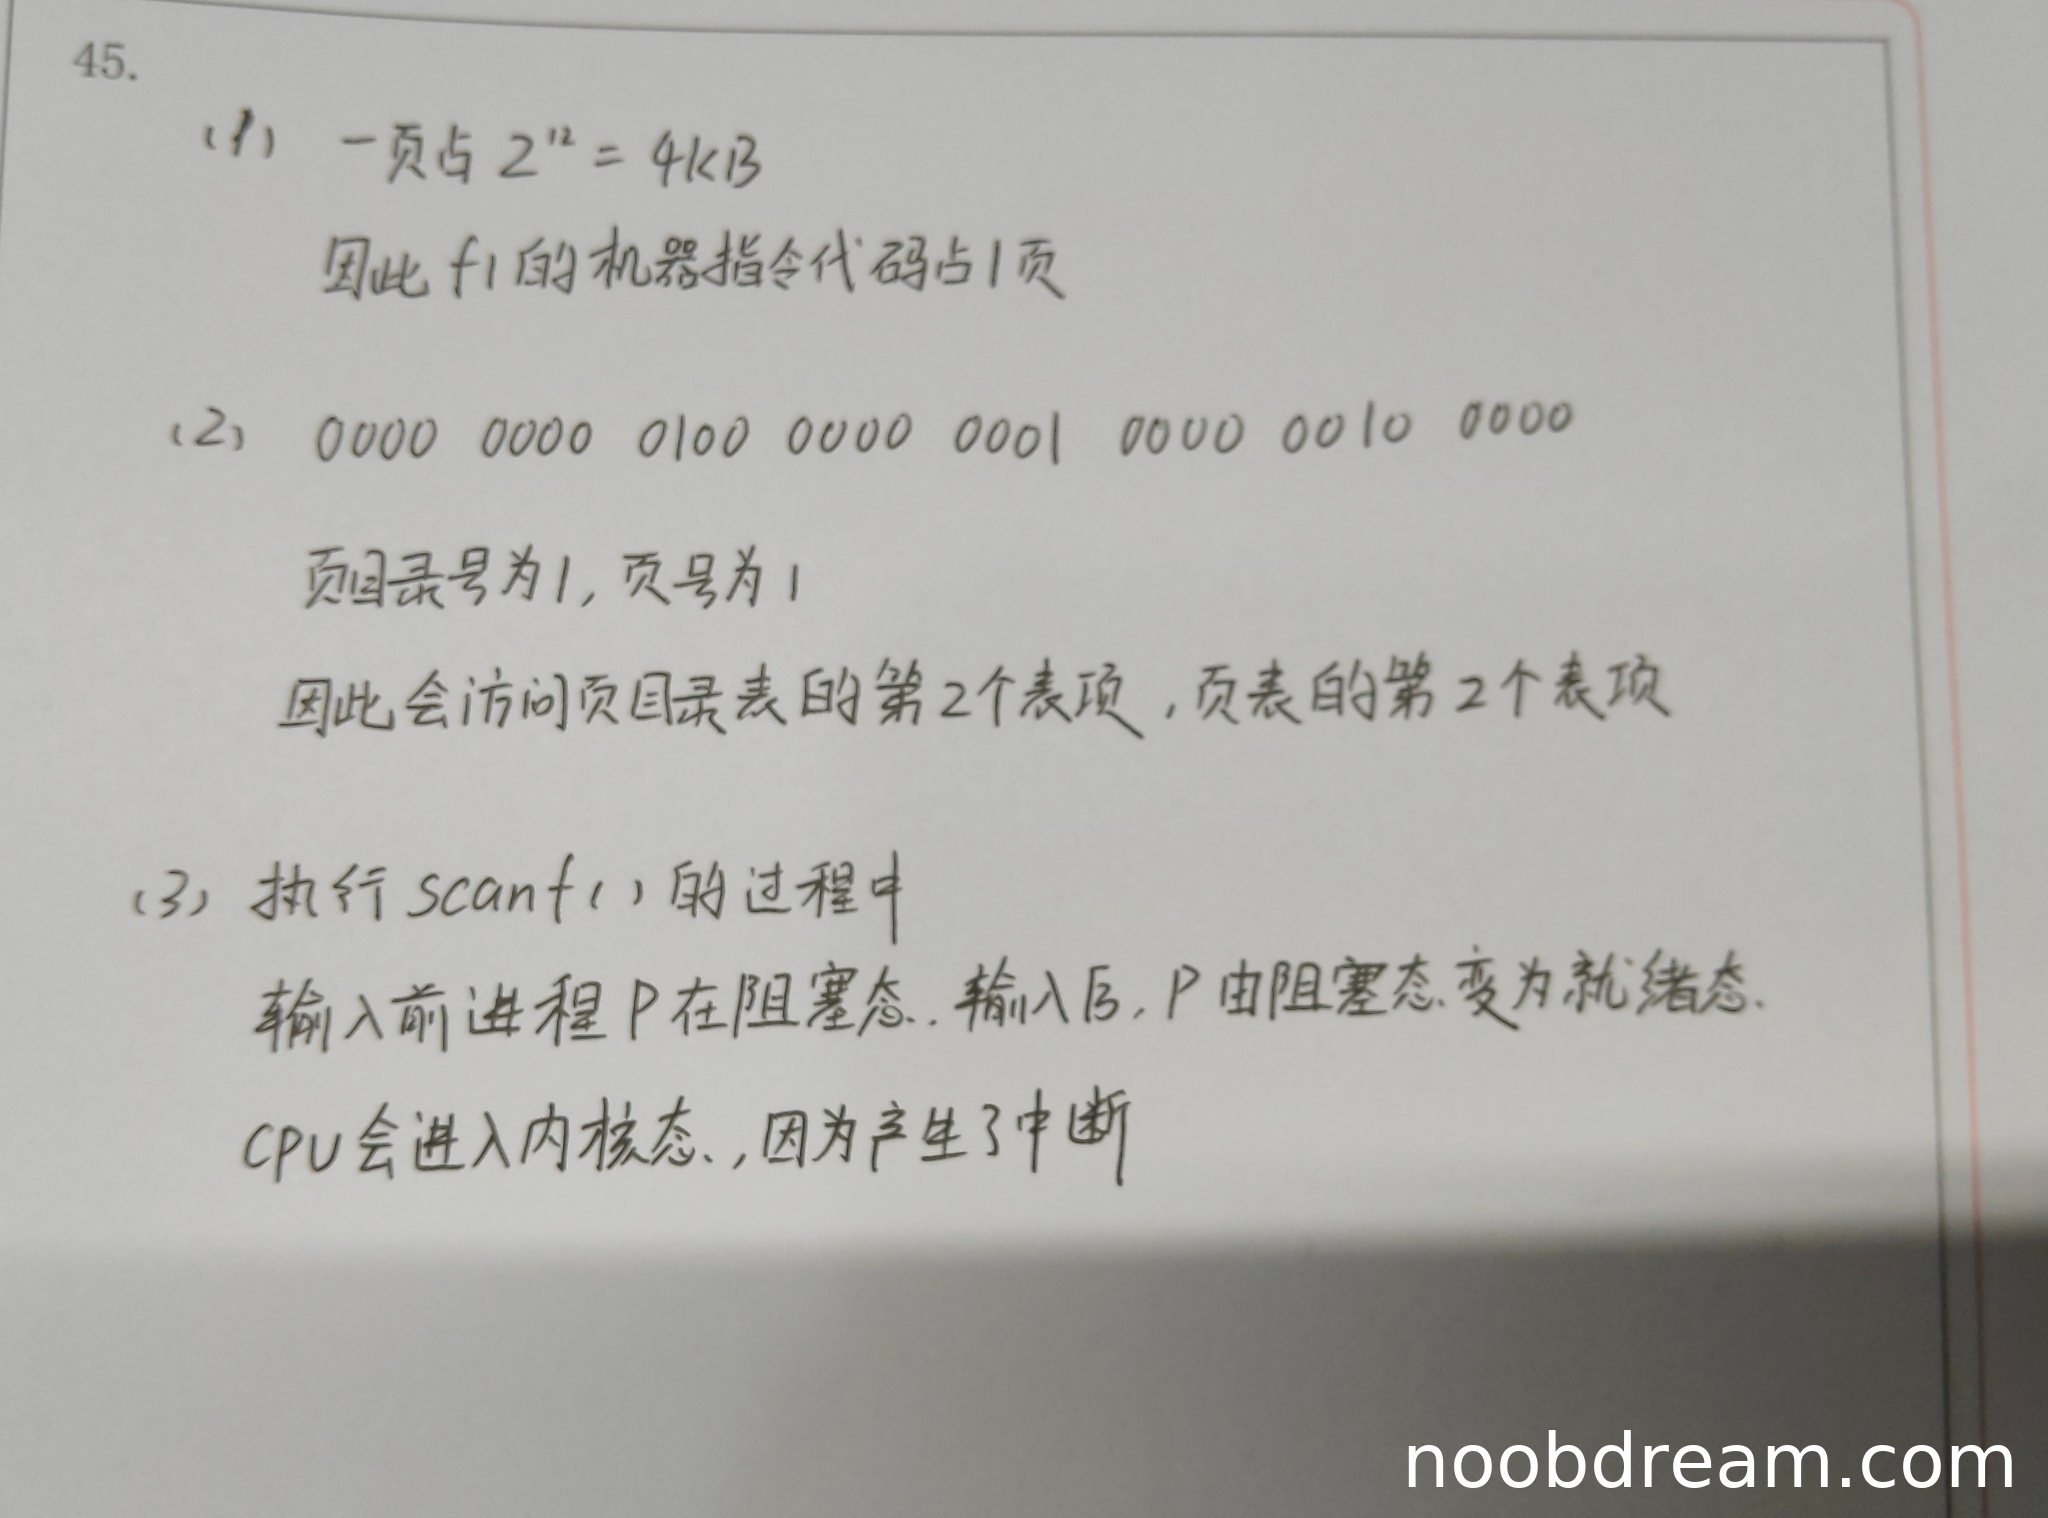 45.
(1) 一页占 2¹² = 4KB
因此 f1 的机器指令代码占1页
(2) 0000 0000 0100 0000 0001 0000 0010 0000
页目录号为1, 页号为1
因此会访问页目录表的第2个表项, 页表的第2个表项
(3) 执行 scanf() 的过程中
输入前进程P在阻塞态. 输入后, P由阻塞态变为就绪态.
CPU会进入内核态, 因为产生了中断
noobdream.com